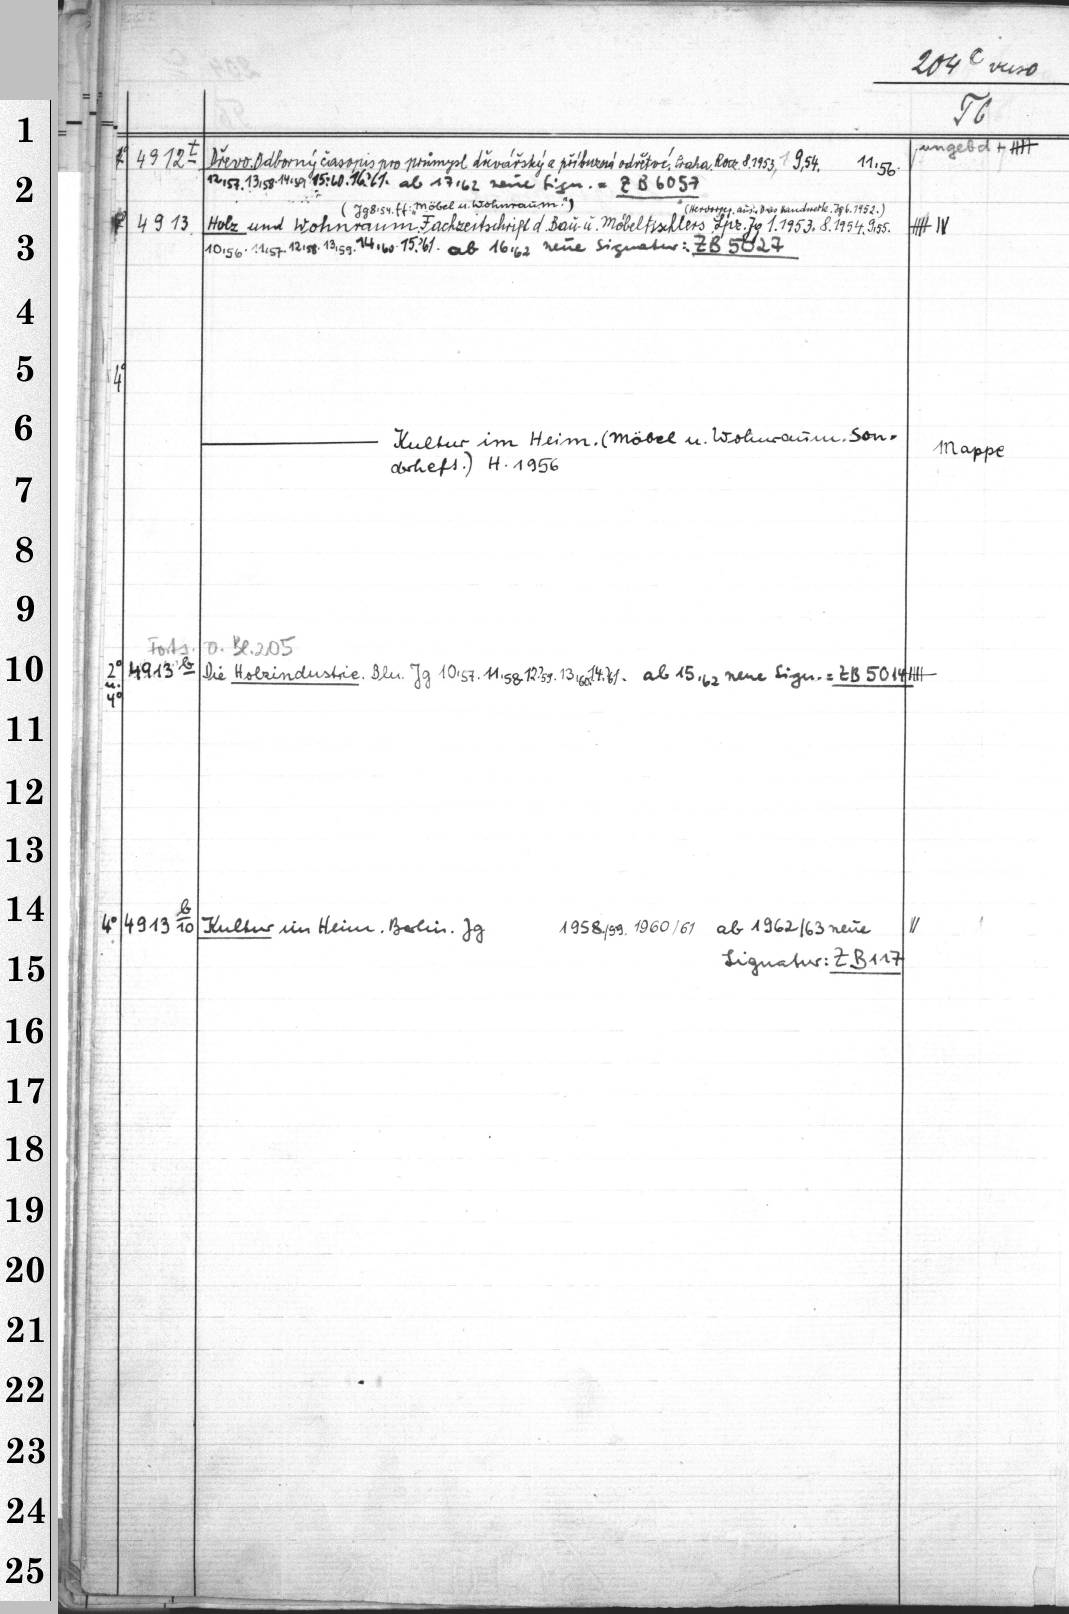 204 c verso
Tb
1
2° 4912 t Dřevo. Odborný časopis pro průmysl dřevařský a příbuzná odvětví. Praha. Roc. 8.1953, 9,54. 11,56. ungebd +
2
12,57. 13,58. 14,59. 15,60. 16,61. ab 17,62 neue Sign. = ZB 6057
(Jg 8,54 ff: "Möbel u. Wohnraum.") (Hervorgeg. aus: Das Handwerk. Jg 6.1952.)
4913 Holz und Wohnraum. Fachzeitschrift d. Bau- u. Möbeltischlers. Lpz. Jg 1.1953. 8.1954. 9,55. IV
3
10,56. 11,57. 12,58. 13,59. 14,60. 15,61. ab 16,62 neue Signatur: ZB 5027
4
5
4°
6
Kultur im Heim. (Möbel u. Wohnraum. Son-
derheft.) H. 1956 Mappe
7
8
9
Forts. o. Bl. 205
10
2° u. 4° 4913 b Die Holzindustrie. Bln. Jg 10,57. 11,58. 12,59. 13,60. 14,61. ab 15,62 neue Sign. = ZB 5014
11
12
13
14
4° 4913 b/10 Kultur im Heim. Berlin. Jg 1958/59. 1960/61 ab 1962/63 neue
15
Signatur: ZB 117
16
17
18
19
20
21
22
23
24
25